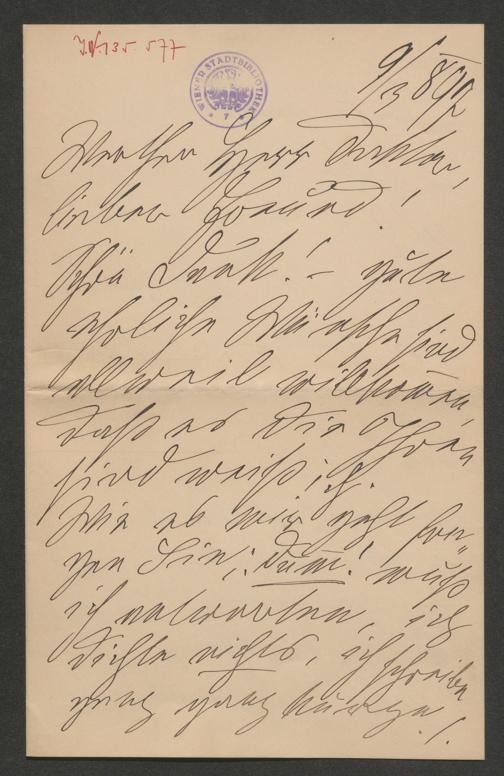 I.N. 135.577
WIENER STADTBIBLIOTHEK
9/3 892
Werther Herr Doktor,
lieber Freund!
Schön Dank! – gute
ehrliche Wünsche sind
allweil willkommen,
daß es die Ihren
sind weiß ich.
Wie es mir geht fra-
gen Sie; dumm! muß
ich antworten, ich
dichte nichts, ich schreibe
ganz ganz